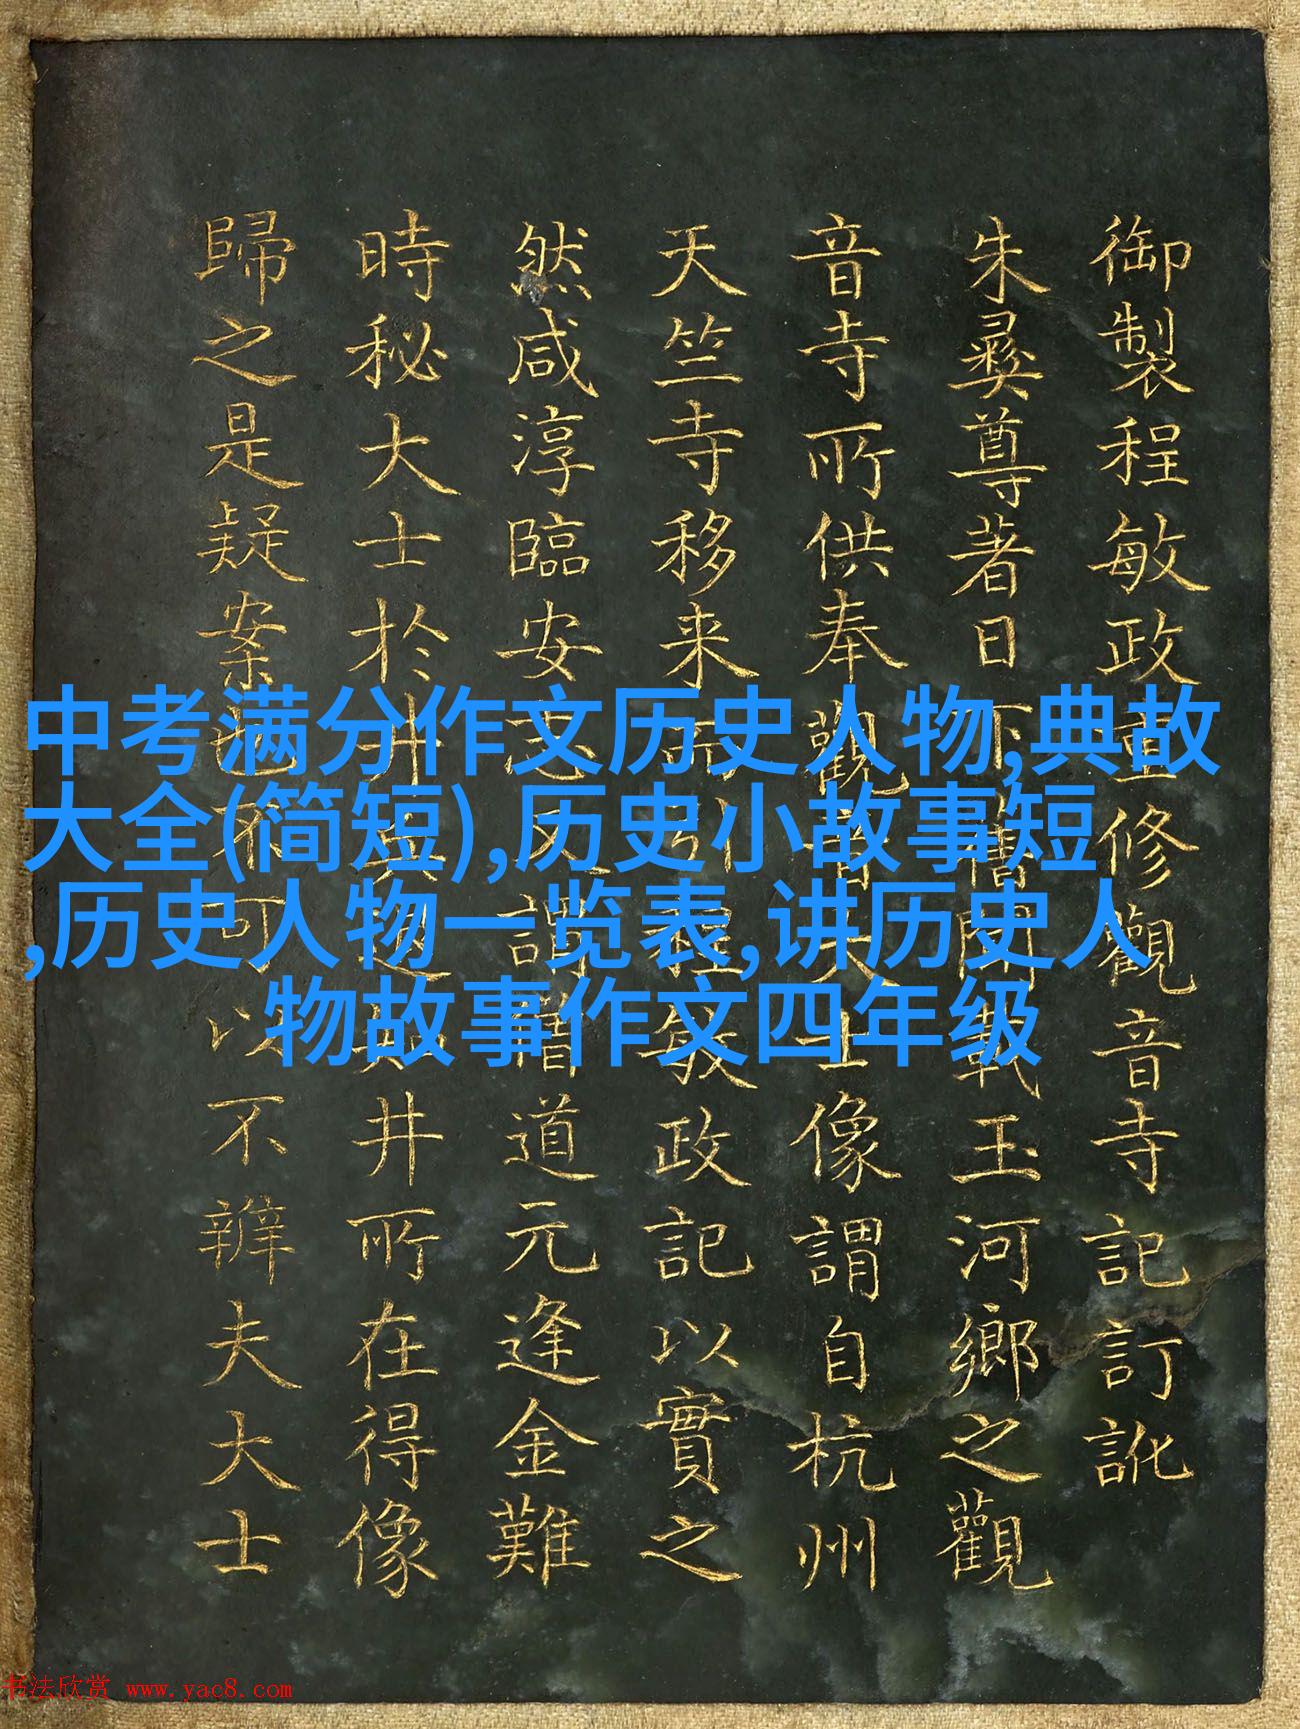 御製程敏政重修觀音寺記訂訛
朱彝尊著日下舊聞載玉河鄉之觀
音寺所供奉觀音大士像謂自杭州
天竺寺移来而引程敏政記以實之
然咸淳臨安志又謂僧道元逢金難
時秘大士於井兵退井所在得像
歸之是疑案也不可以不辨夫大士
中考满分作文历史人物,典故
大全(简短),历史小故事短
,历史人物一览表,讲历史人
物故事作文四年级
书法欣赏 www.yac8.com